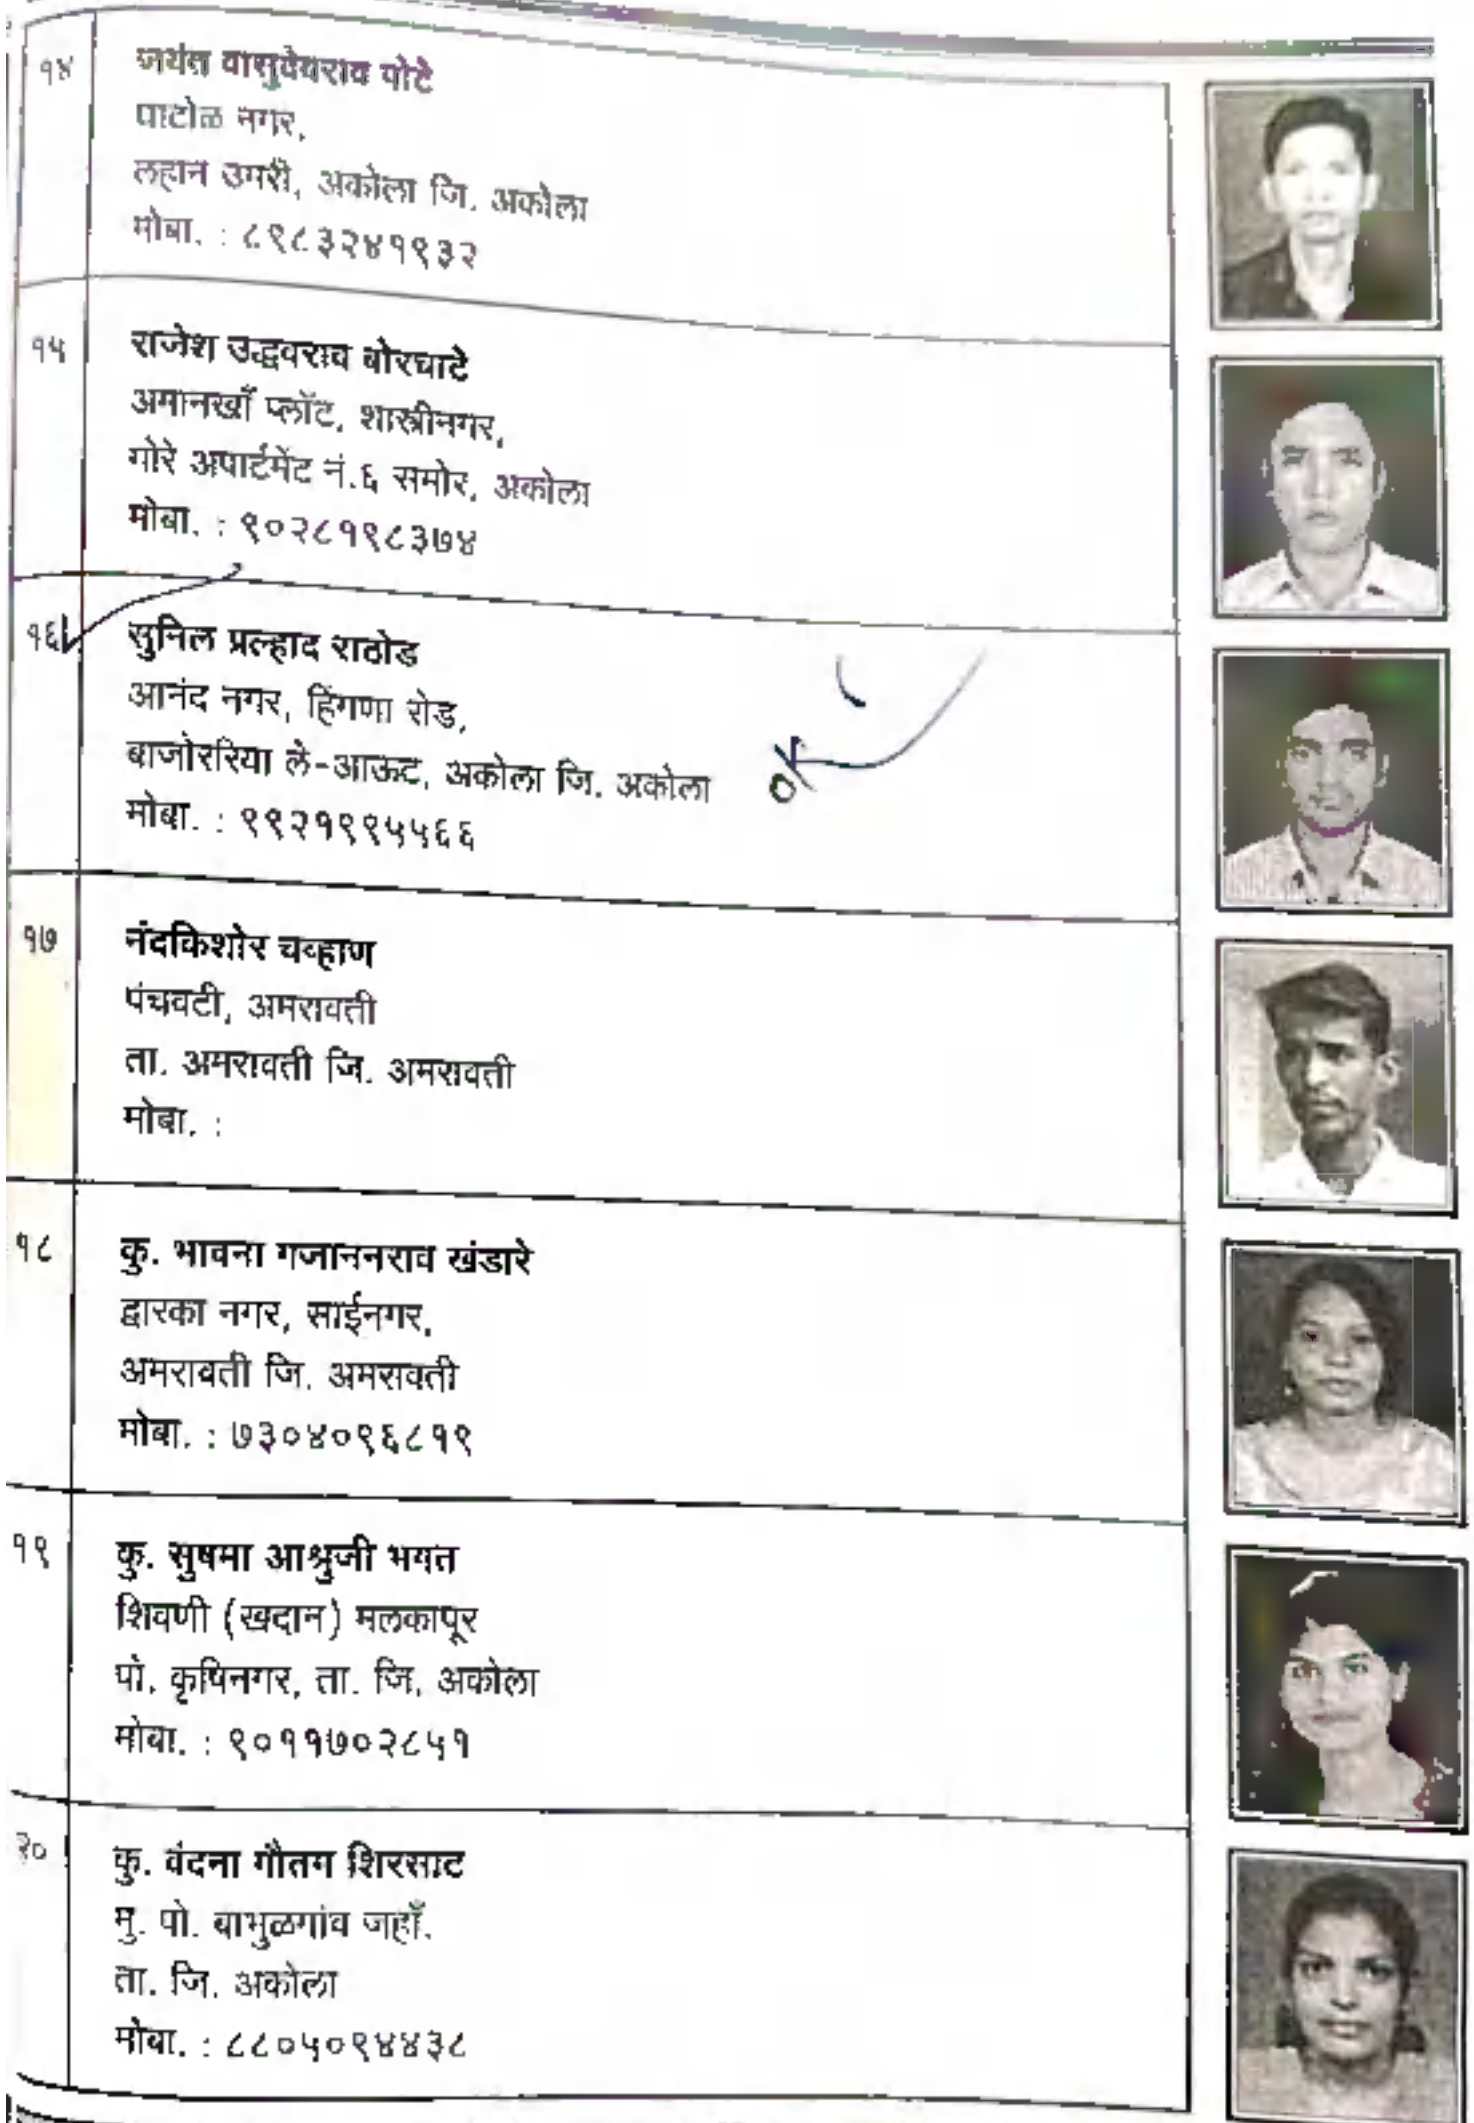 १४
जयंत वासुदेवराव पोटे
पाटोळ नगर,
लहान उमरी, अकोला जि. अकोला
मोबा. : ८९८३२४१९३२
१५
राजेश उद्धवराव बोरचाटे
अमानखाँ प्लॉट, शास्त्रीनगर,
गोरे अपार्टमेंट नं.६ समोर, अकोला
मोबा. : ९०२८१९८३७४
१६
सुनिल प्रल्हाद राठोड
आनंद नगर, हिंगणा रोड,
बाजोररिया ले-आऊट, अकोला जि. अकोला
मोबा. : ९९२१९९५५६६
१७
नंदकिशोर चव्हाण
पंचवटी, अमरावती
ता. अमरावती जि. अमरावती
मोबा. :
१८
कु. भावना गजाननराव खंडारे
द्वारका नगर, साईनगर,
अमरावती जि. अमरावती
मोबा. : ७३०४०९६८१९
१९
कु. सुषमा आश्रुजी भगत
शिवणी (खदान) मलकापूर
पो. कृषिनगर, ता. जि. अकोला
मोबा. : ९०११७०२८५१
२०
कु. वंदना गौतम शिरसाट
मु. पो. बाभुळगांव जहाँ.
ता. जि. अकोला
मोबा. : ८८०५०९४४३८